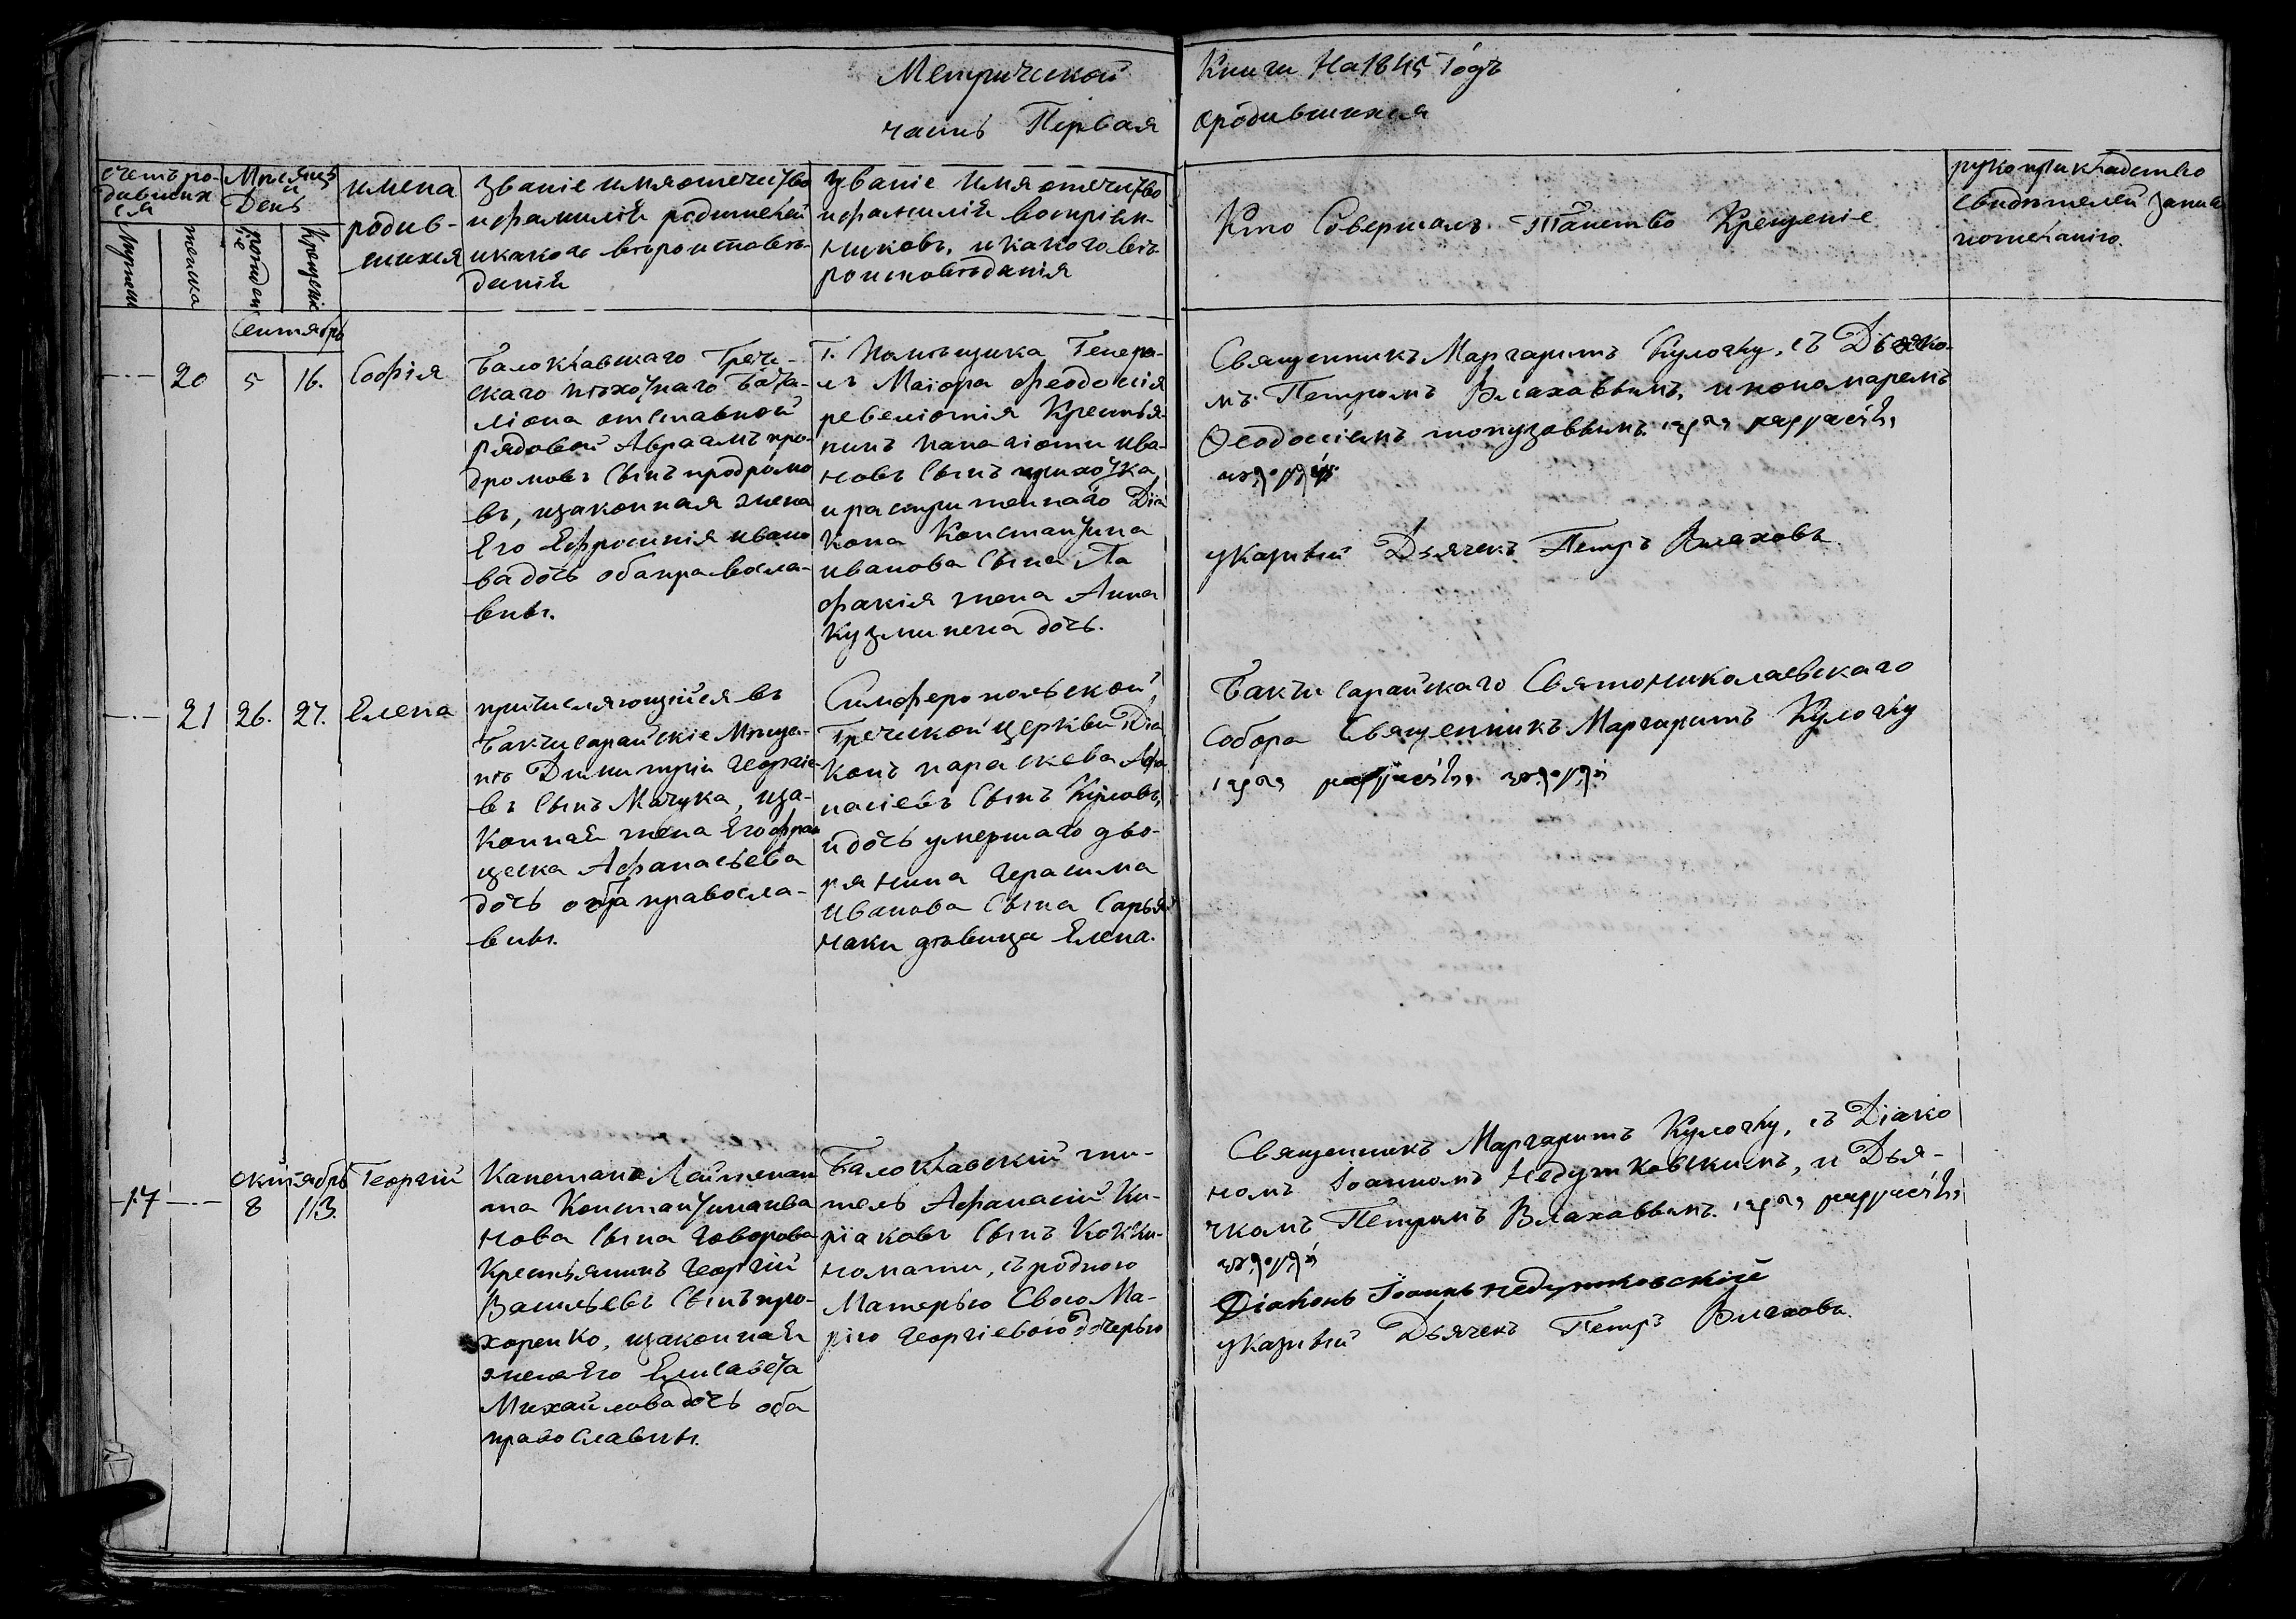 Метрической Книги На 1845 Годъ
часть Первая ородившихся
счетъ ро-
дивших
ся
Мѣсяцъ
и
День
имена
родив-
шихся
Званіе имя отечество
и фамилія родителей
и какого вѣроисповѣ-
данія
Званіе Имя отечество
и фамилія воспріем-
никовъ, и какого вѣ-
роисповѣданія
Кто Совершалъ Таинство Крещеніе
рукоприкладство
свидѣтелей записи
по желанію.
мужеска
женска
рожденіе
Крещеніе
Сентябрь
20 5 16. Софія
Балоклавскаго Грече-
скаго пѣхотнаго Бата-
ліона отставной
рядовой Авраамъ про-
дромовъ Сынъ продромо
въ, и законная жена
Его Ефросинія ивано
ва дочь оба правосла-
вны.
Г. Помѣщика Генера-
лъ Маіора феодосія
ревеліотія Крестья
нинъ панагіоти ива-
новъ Сынъ
и растриженнаго Діа
кона Константина
иванова Сына
жена Анна
Кузминена дочь.
Священникъ Маргаритъ Кулочку, съ Дьячко-
мъ Петромъ Влаховымъ, и пономаремъ
Ѳеодосіемъ топузовымъ.
указный Дьячекъ Петръ Влаховъ
21 26. 27. Елена
причисляющійся въ
Бакчисарайскіе Мѣща-
нѣ Димитрій Георгіе-
въ Сынъ Мачука, иза-
конная жена Его фран
цеска Афанасьева
дочь оба правосла-
вны.
Симферопольской
Греческой церкви Діа
конъ параскева Афа
насіевъ Сынъ
и дочь умершаго дво-
рянина Герасима
Иванова Сына Сарья
наки дѣвица Елена.
Бакчисарайскаго Святониколаевскаго
Собора Священникъ Маргаритъ Кулочку
октябрь
17 8 13. Георгій
Капетана Лайтенан
та Константина ива
нова Сына Говорова
Крестьянинъ Георгій
Васильевъ Сынъ про-
хоренко, изаконная
жена Его Елисавета
Михайлова дочь оба
православны.
Балоклавскій жи-
тель Афанасій Ки-
ріаковъ Сынъ Кокки-
номати, съ родною
Матерью Свою Ма-
рію Георгіевою дочерью
Священникъ Маргаритъ Кулочку, съ Діако
номъ Іоанномъ Недутковскимъ, и Дья-
чкомъ Петромъ Влаховымъ.
Діаконъ Іоаннъ недутковскій
указный Дьячекъ Петръ Влаховъ.